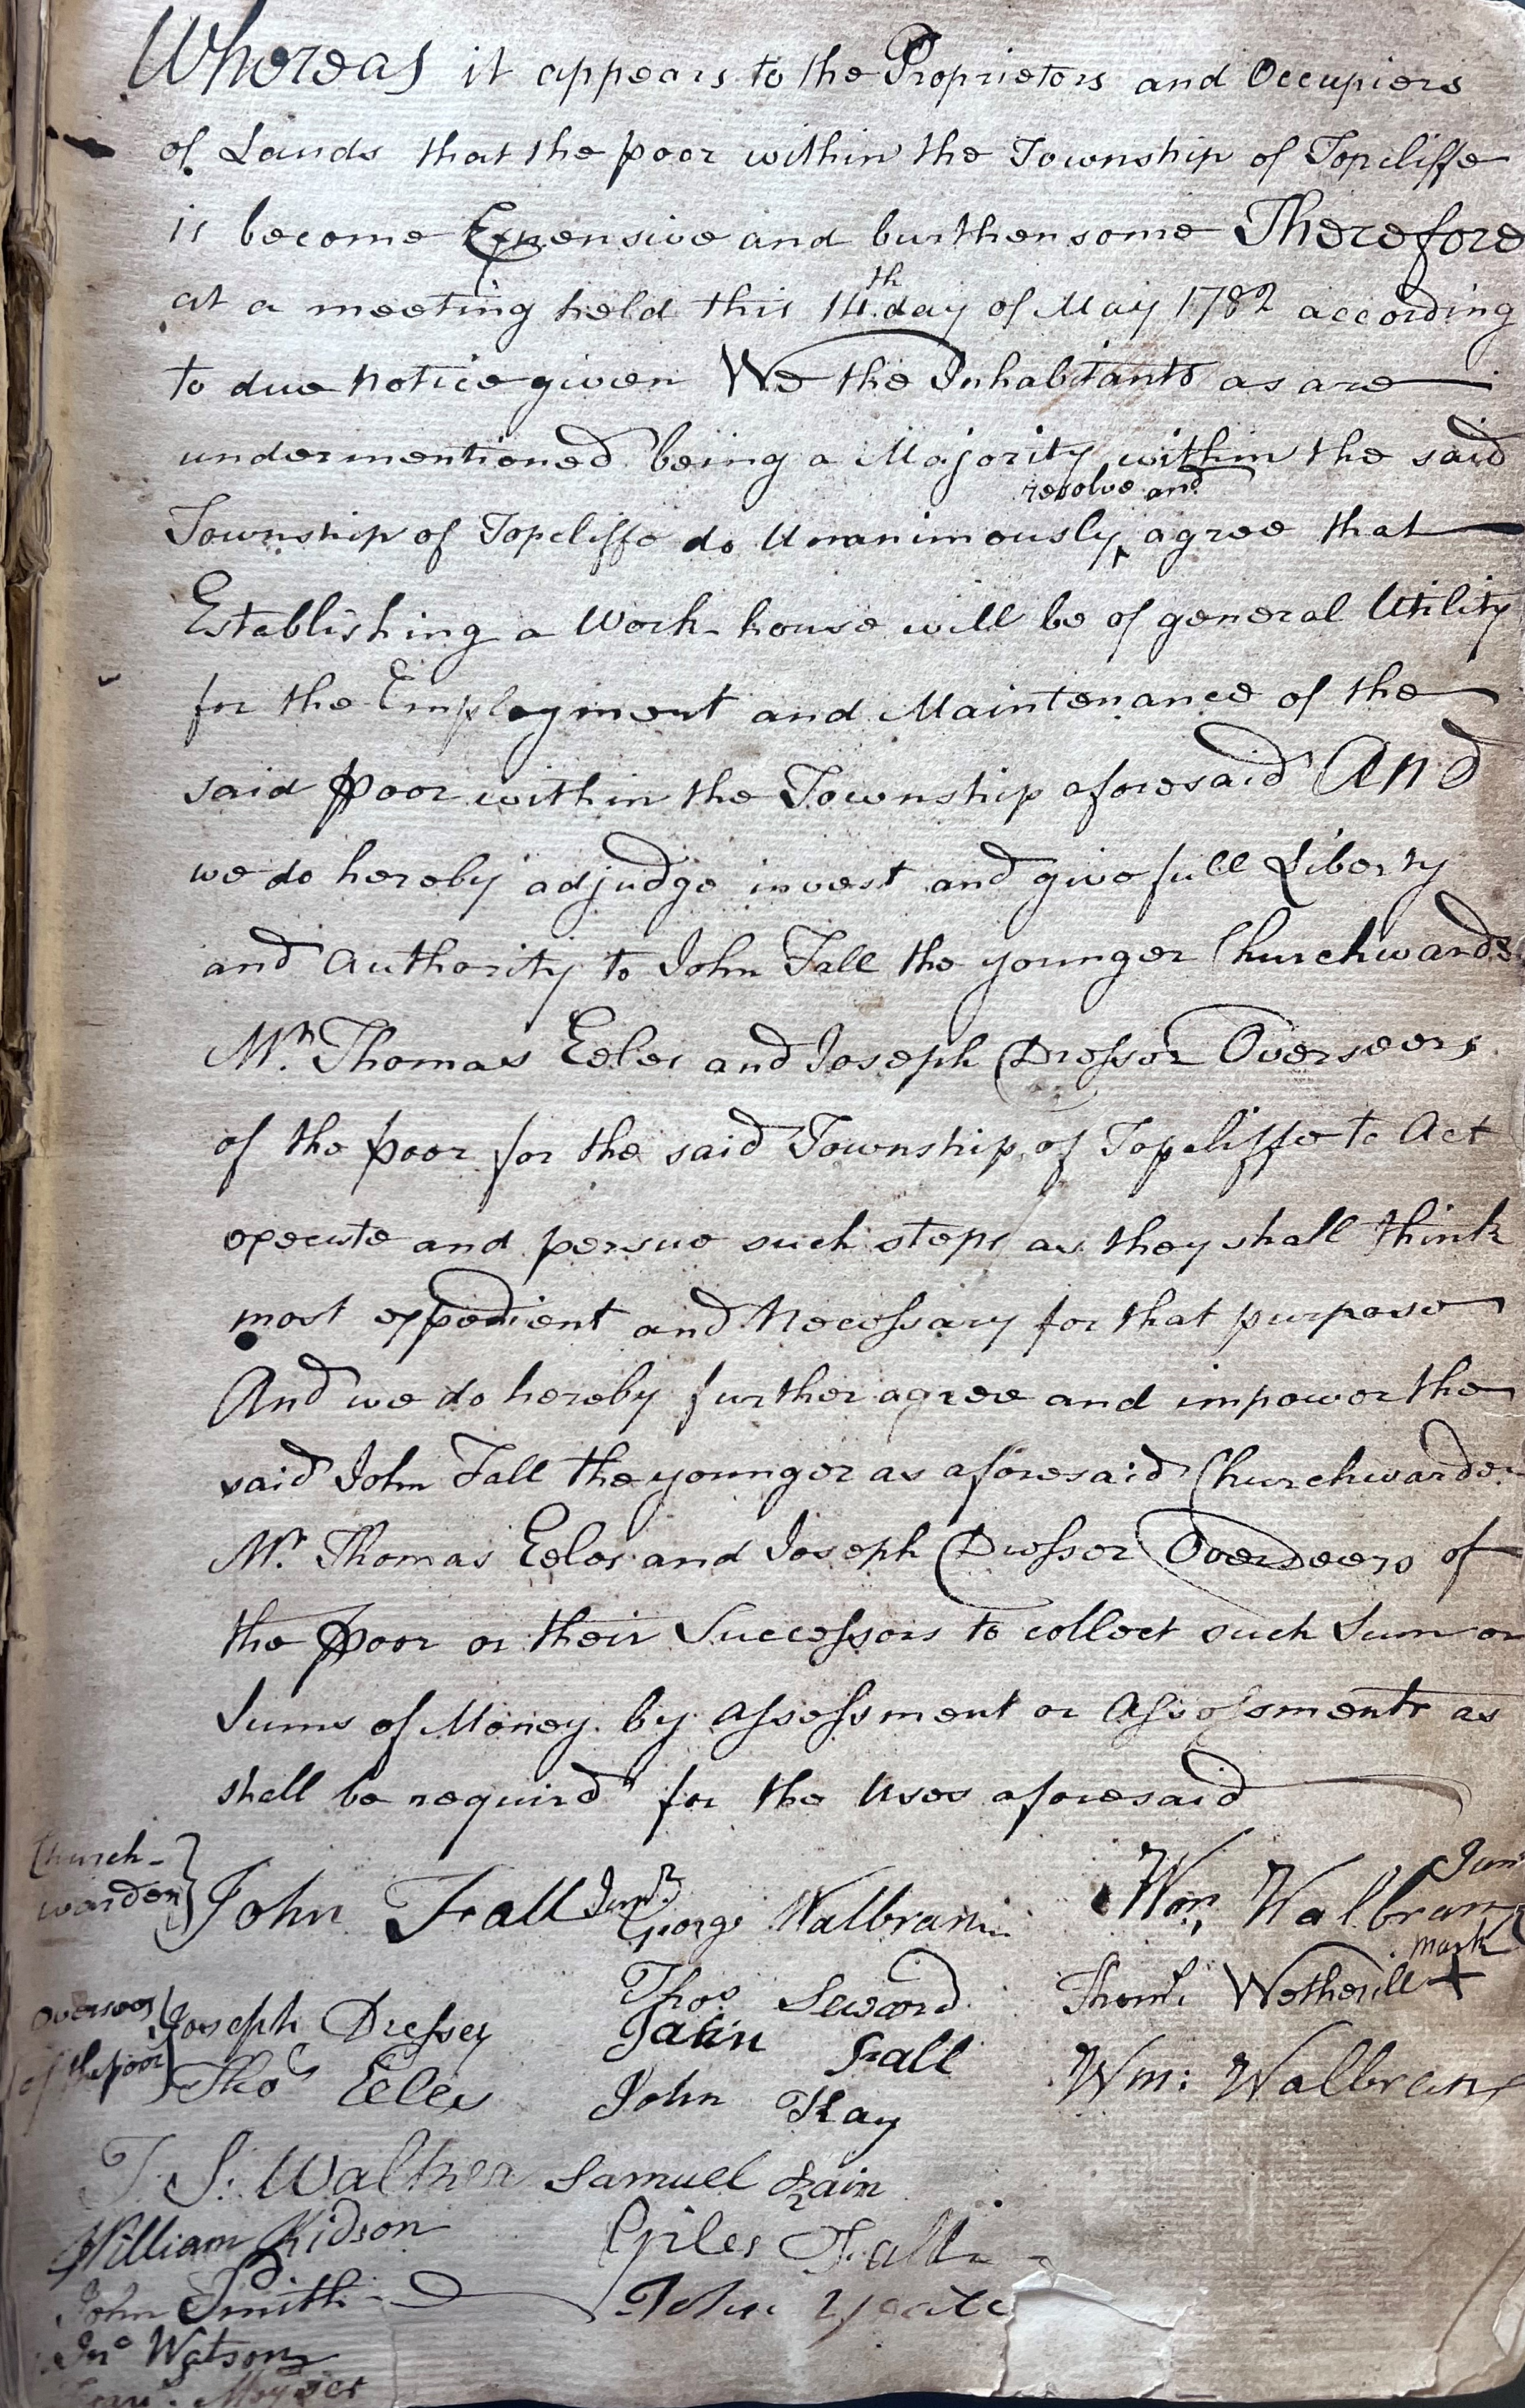 Whereas it appears to the Proprietors and Occupiers
of Lands that the poor within the Township of Topcliffe
is become Expensive and burthensome Therefore
at a meeting held this 14th day of May 1782 according
to due Notice given We the Inhabitants as are
undermentioned being a Majority within the said
resolve and
Township of Topcliffe do Unanimously agree that
Establishing a Work-house will be of general Utility
for the Employment and Maintenance of the
said Poor within the Township aforesaid And
we do hereby adjudge invest and give full Liberty
and Authority to John Fall the younger Churchwarden
Mr. Thomas Eeles and Joseph Dresser Overseers
of the poor for the said Township of Topcliffe to Act
execute and persue such steps as they shall think
most expedient and Necessary for that purpose
And we do hereby further agree and impower the
said John Fall the younger as aforesaid Churchwarden
Mr. Thomas Eeles and Joseph Dresser Overseers of
the Poor or their Successors to collect such Sum or
Sums of Money by Assessment or Assessments as
shall be requird for the Uses aforesaid
Church-
warden
John Fall Junr.
George Walbran
Wm. Walbran Jun
Overseers
of the poor
Joseph Dresser
Thos Seward
Thoms. Wetherill X
mark
Thos Eeles
John Fall
Wm: Walbran
John Kay
T. S. Walker
Samuel Bain
William Kidson
Giles Fall
John Smith
John
Jno Watson